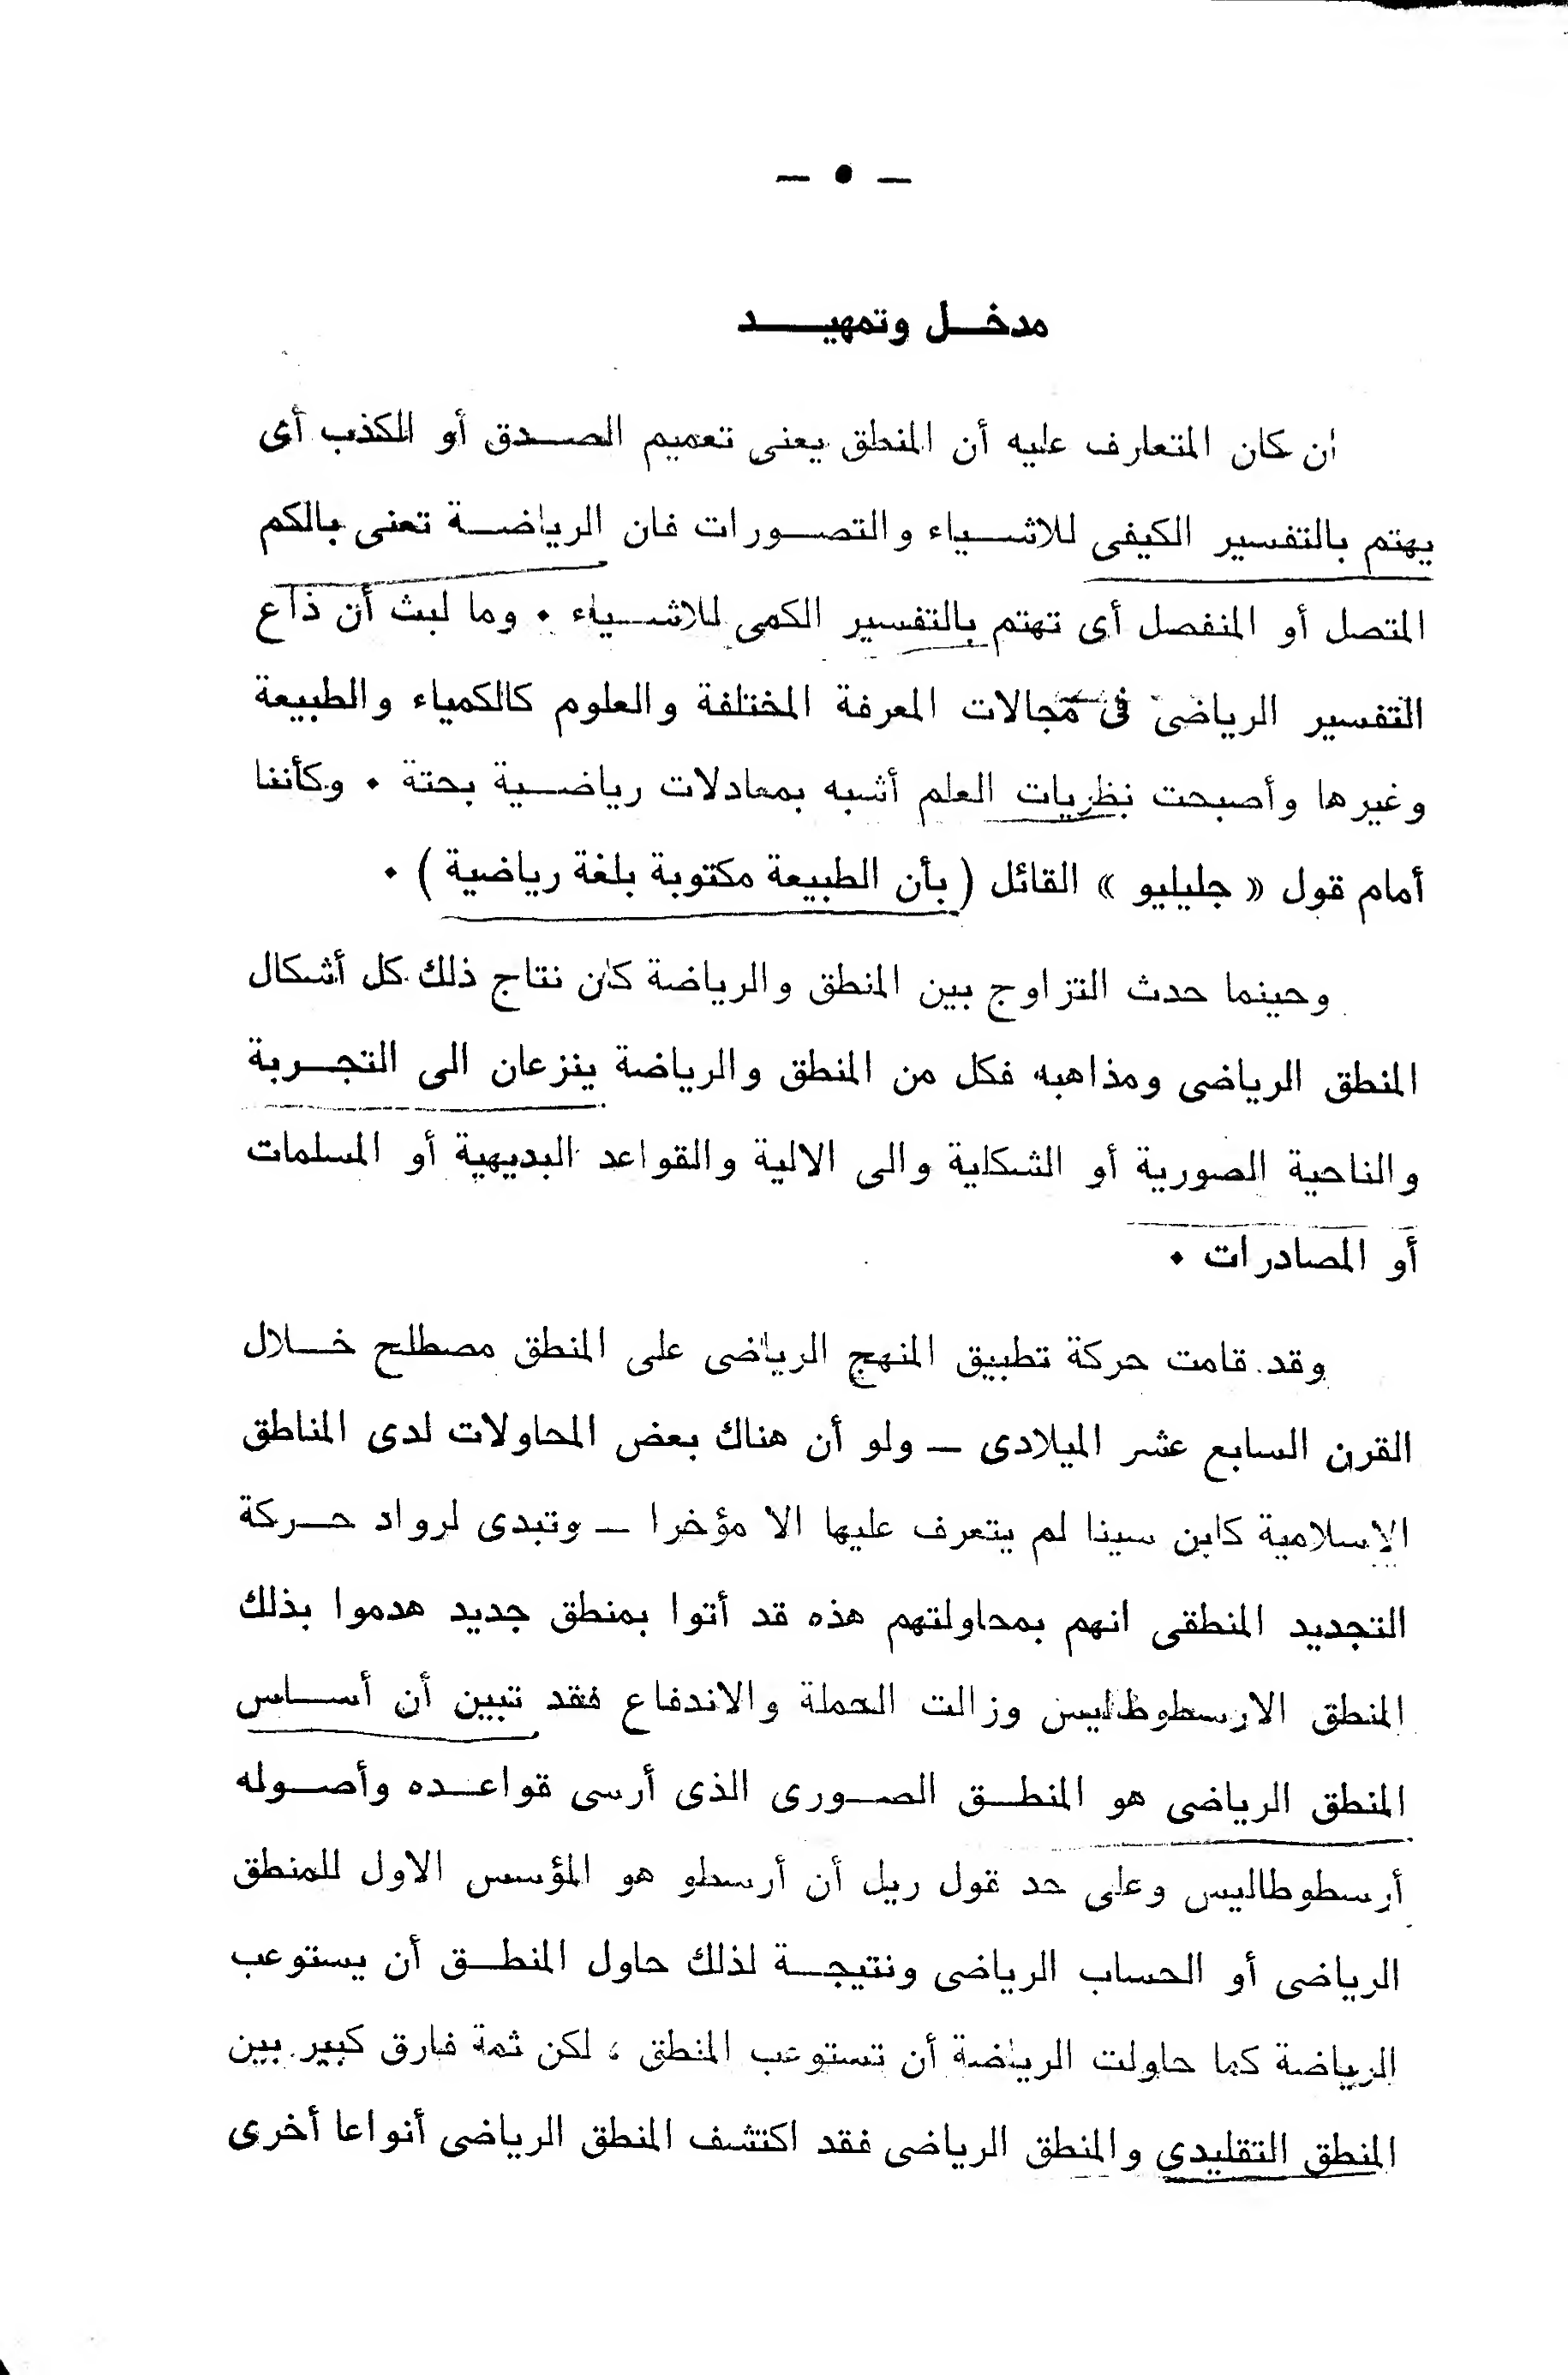 — ٥ —
مدخل وتمهيد
ان كان المتعارف عليه أن المنطق يعنى تعميم الصدق أو الكذب أى
يهتم بالتفسير الكيفى للاشياء والتصورات فان الرياضة تعنى بالكم
المتصل أو المنفصل أى تهتم بالتفسير الكمى للاشياء . وما لبث أن ذاع
التفسير الرياضى فى مجالات المعرفة المختلفة والعلوم كالكمياء والطبيعة
وغيرها وأصبحت نظريات العلم أشبه بمعادلات رياضية بحتة . وكأننا
أمام قول « جليليو » القائل ( بأن الطبيعة مكتوبة بلغة رياضية ) .
وحينما حدث التزاوج بين المنطق والرياضة كان نتاج ذلك كل أشكال
المنطق الرياضى ومذاهبه فكل من المنطق والرياضة ينزعان الى التجربة
والناحية الصورية أو الشكلية والى الالية والقواعد البديهية أو المسلمات
أو المصادرات .
وقد قامت حركة تطبيق المنهج الرياضى على المنطق مصطلح خلال
القرن السابع عشر الميلادى — ولو أن هناك بعض المحاولات لدى المناطق
الاسلامية كابن سينا لم يتعرف عليها الا مؤخرا — وتبدى لرواد حركة
التجديد المنطقى انهم بمحاولتهم هذه قد أتوا بمنطق جديد هدموا بذلك
المنطق الارسطوطاليس وزالت الحملة والاندفاع فقد تبين أن أساس
المنطق الرياضى هو المنطق الصورى الذى أرسى قواعده وأصوله
أرسطوطاليس وعلى حد قول ريل أن أرسطو هو المؤسس الاول للمنطق
الرياضى أو الحساب الرياضى ونتيجة لذلك حاول المنطق أن يستوعب
الرياضة كما حاولت الرياضة أن تستوعب المنطق ، لكن ثمة فارق كبير بين
المنطق التقليدى والمنطق الرياضى فقد اكتشف المنطق الرياضى أنواعا أخرى